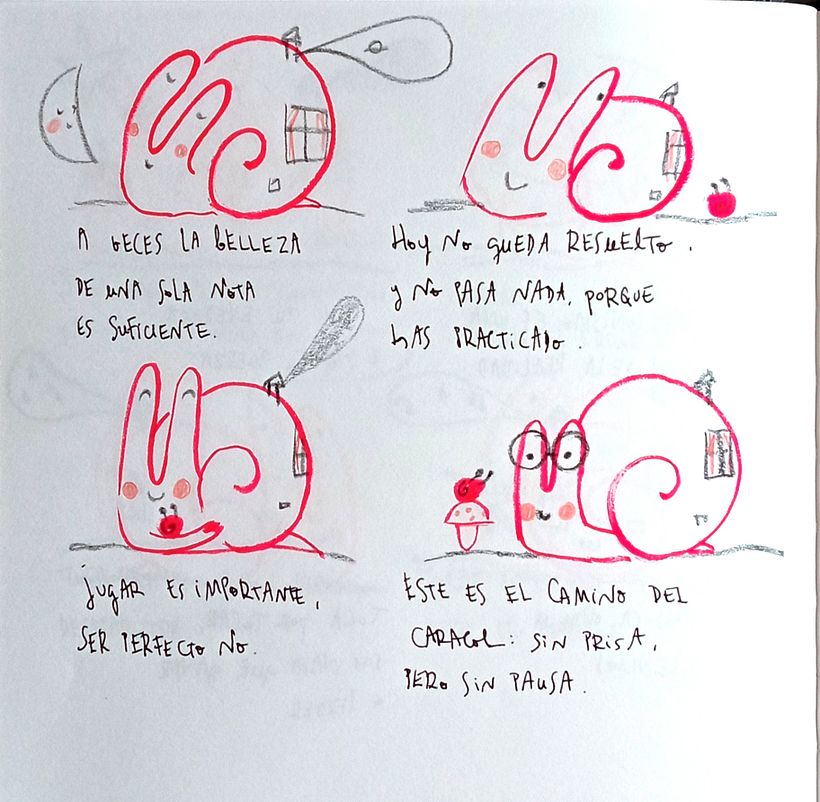 A VECES LA BELLEZA
DE UNA SOLA NOTA
ES SUFICIENTE.
HOY NO QUEDA RESUELTO.
Y NO PASA NADA, PORQUE
HAS PRACTICADO.
JUGAR ES IMPORTANTE,
SER PERFECTO NO.
ESTE ES EL CAMINO DEL
CARACOL: SIN PRISA,
PERO SIN PAUSA.